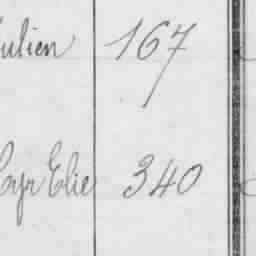 ulien 167
Cyr Elie 340